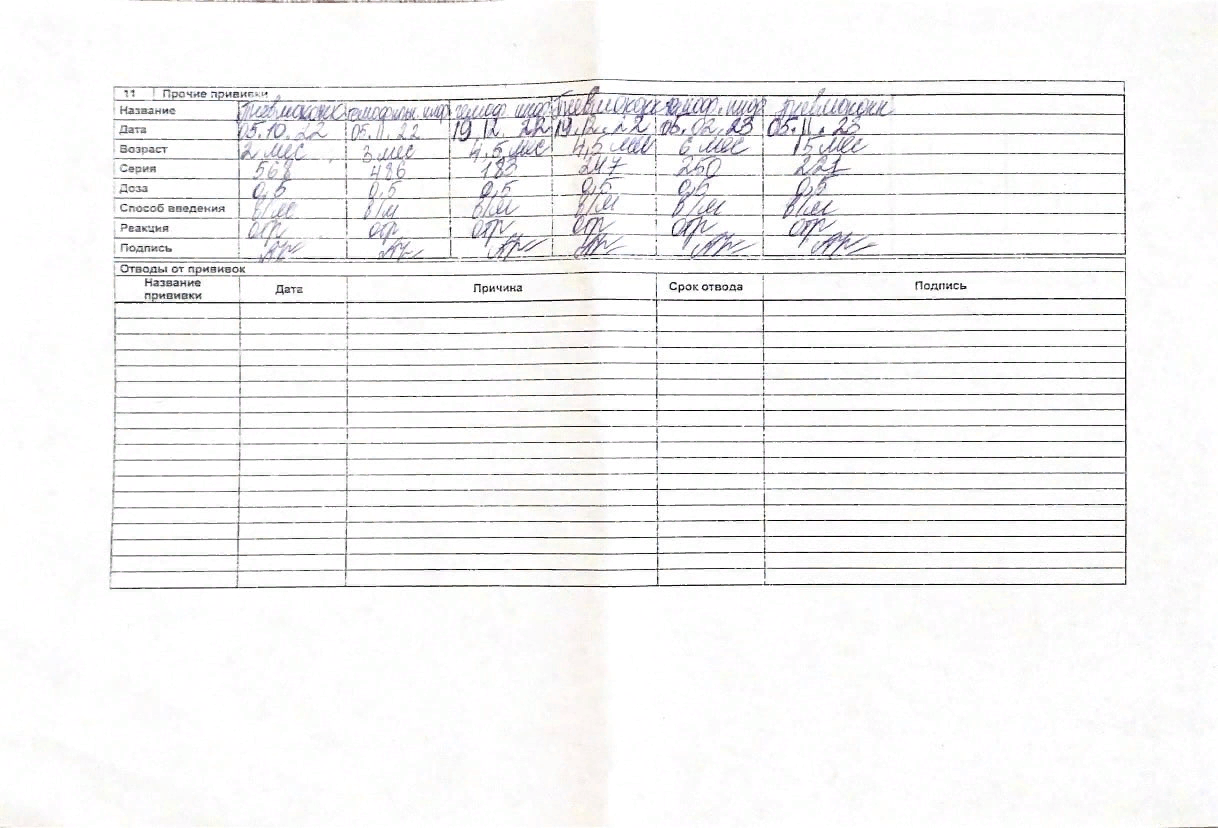 11 Прочие прививки
Название пневмококк гемофильн. инф гемоф. инф пневмококк гемоф. инф пневмококк
Дата 05.10.22 05.11.22 19.12.22 19.12.22 05.02.23 05.11.23
Возраст 2 мес 3 мес 4,5 мес 4,5 мес 6 мес 15 мес
Серия 568 486 183 247 250 221
Доза 0,5 0,5 0,5 0,5 0,5 0,5
Способ введения в/м в/м в/м в/м в/м в/м
Реакция отр отр отр отр отр отр
Подпись
Отводы от прививок
Название прививки Дата Причина Срок отвода Подпись